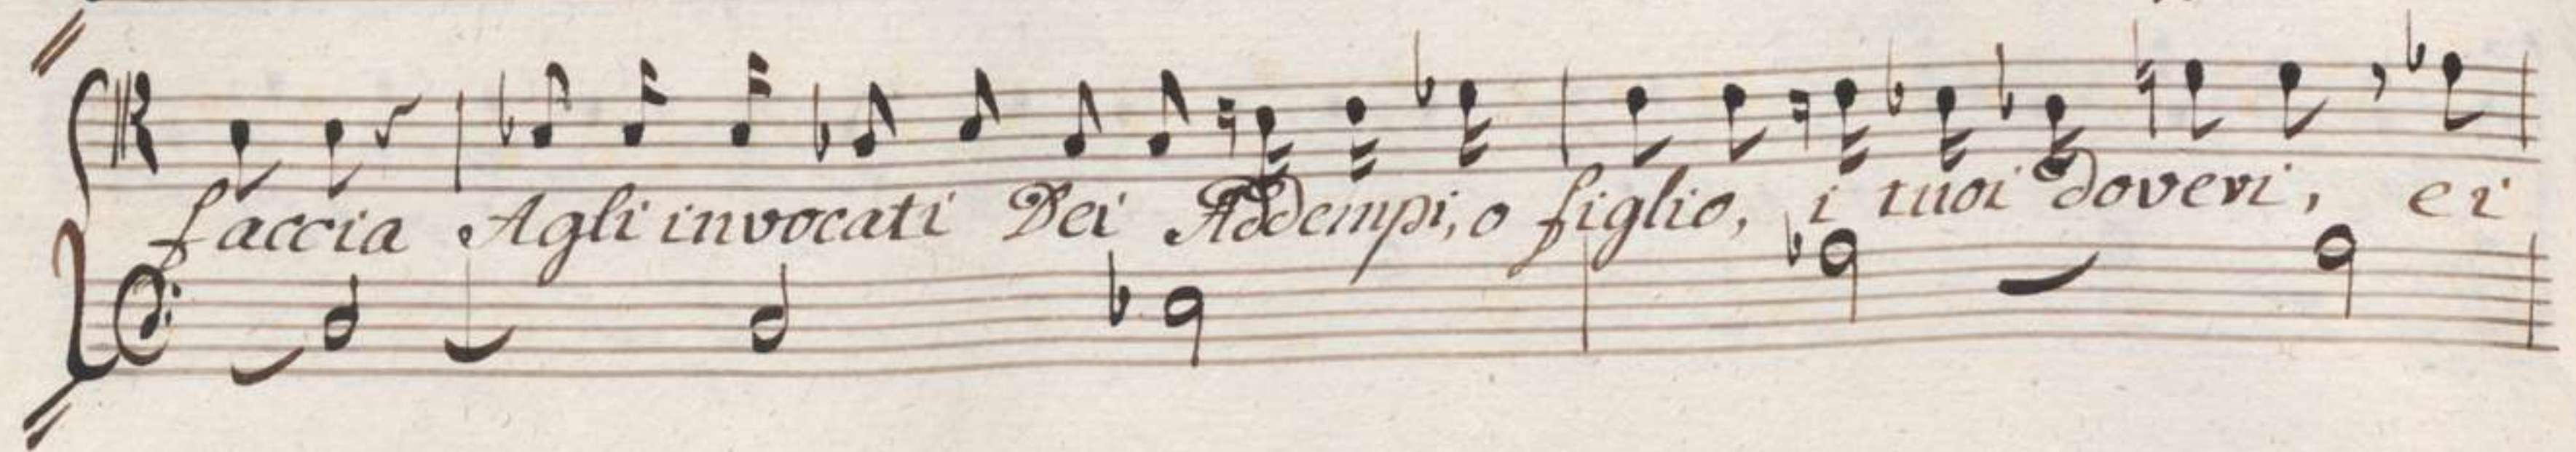 faccia Agli invocati Dei Addempi, o figlio, i tuoi doveri, ei